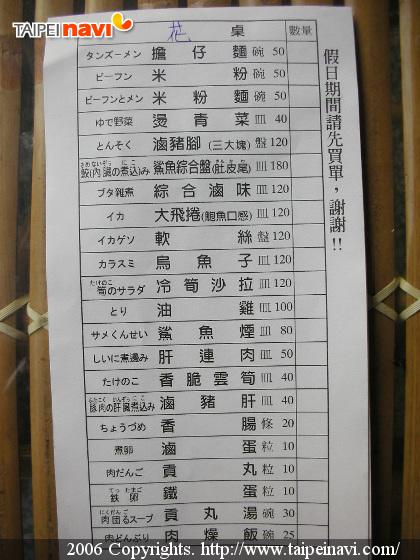 TAIPEInavi
花 桌 數量
タンズーメン 擔仔麵 碗 50
ビーフン 米粉 碗 50
ビーフンとメン 米粉麵 碗 50
ゆで野菜 燙青菜 皿 40
とんそく 滷豬腳(三大塊) 盤 120
さめないぞう にこ
鮫(内臓の煮込)み 鯊魚綜合盤(肚皮尾) 皿 180
ブタ雑煮 綜合滷味 皿 120
イカ 大飛捲(鮑魚口感) 皿 120
イカゲソ 軟絲 盤 120
カラスミ 烏魚子 皿 120
たけのこ
筍のサラダ 冷筍沙拉 皿 120
とり 油雞 皿 100
サメくんせい 鯊魚煙 皿 80
しいに煮邊み 肝連肉 皿 50
たけのこ 香脆雲筍 皿 40
豚肉の肝臓煮込み 滷豬肝 皿 40
ちょうづめ 香腸 條 20
煮卵 滷蛋 粒 10
肉だんご 貢丸 粒 10
てつ たまご
鉄卵 鐵蛋 粒 10
にくだんご
肉団るスープ 貢丸湯 碗 30
肉どんぶり 肉燥飯 碗 25
假日期間請先買單，謝謝!!
2006 Copyrights. http://www.taipeinavi.com/